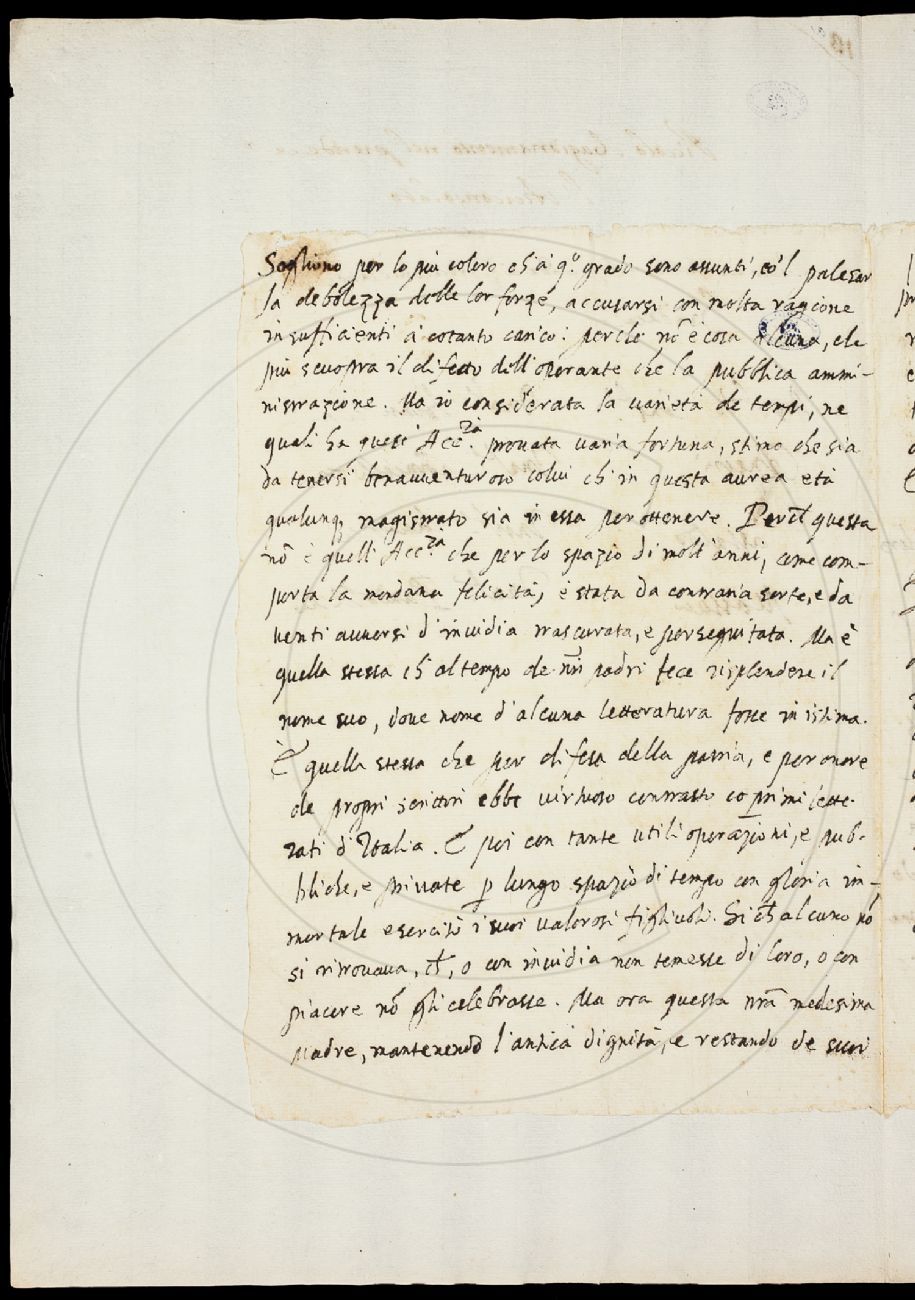 Sogliono per lo più coloro ch'à q.o grado sono assunti, co'l palesar
la debolezza delle lor forze, accusarsi con molta ragione
insufficienti à cotanto carico: perche nõ è cosa alcuna, che
più scuopra il difetto dell'operante che la pubblica ammi-
nistrazione. Ma io considerata la varietà de tempi, ne
quali ha quest'Acc.za prouata varia fortuna, stimo che sia
da tenersi benauuenturoso colui ch'in questa aurea età
qualunq, magistrato sia in essa per ottenere. Perch̃ questa
nõ è quell'Acc.za che per lo spazio di molt'anni, come com-
porta la mondana felicità, è stata da contraria sorte, e da
uenti auuersi d'inuidia trascurata, e perseguitata. Ma è
quella stessa ch'al tempo de nr̃i padri fece risplendere il
nome suo, doue nome d'alcuna letteratura fosse in istima.
È quella stessa che per difesa della patria, e per onore
de propri scrittori ebbe uirtuoso contrasto co primi lette-
rati d'Italia. E poi con tante utili operazioni, e pub-
bliche, e priuate p lungo spazio di tempo con gloria im-
mortale esercitò i suoi ualorosi figliuoli. Si ch̃ alcuno nõ
si ritrouaua, ch̃, o con inuidia non temesse di loro, o con
piacere nõ gli celebrasse. Ma ora questa nr̃a medesima
Madre, mantenendo l'antica dignità, e restando de suoi